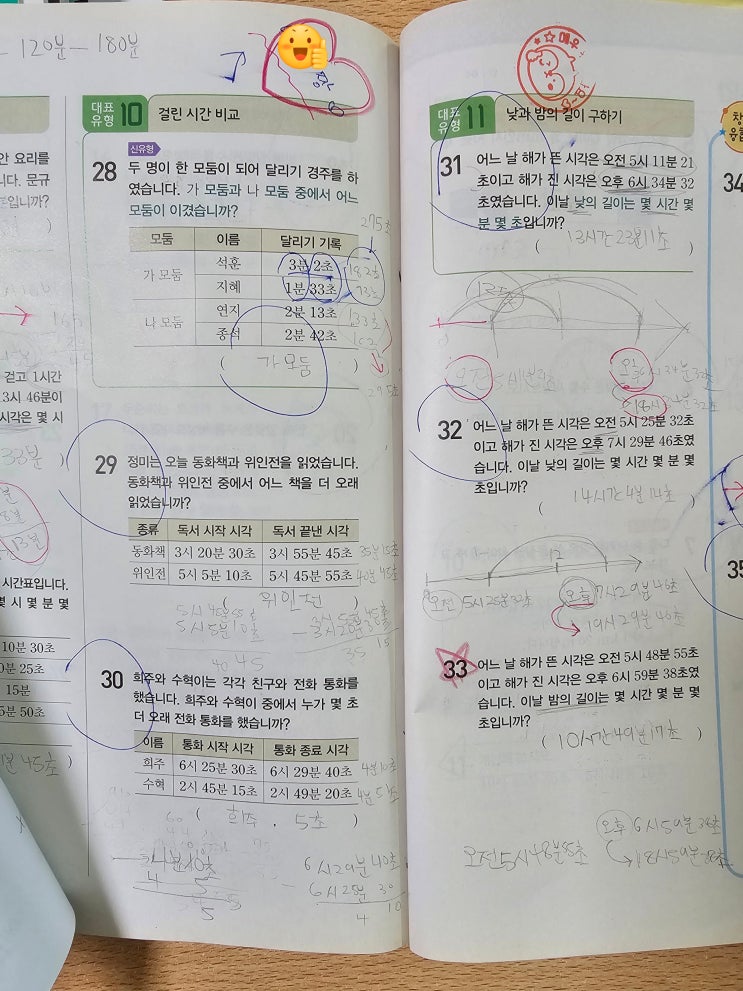 120분 - 180분
대표 유형 10 걸린 시간 비교
신유형
28 두 명이 한 모둠이 되어 달리기 경주를 하
였습니다. 가 모둠과 나 모둠 중에서 어느
모둠이 이겼습니까?
모둠 이름 달리기 기록
가 모둠 석훈 3분 2초
지혜 1분 33초
나 모둠 연지 2분 13초
종석 2분 42초
275초
182초
133초
162
295초
( 가 모둠 )
29 정미는 오늘 동화책과 위인전을 읽었습니다.
동화책과 위인전 중에서 어느 책을 더 오래
읽었습니까?
종류 독서 시작 시각 독서 끝낸 시각
동화책 3시 20분 30초 3시 55분 45초 35분 15초
위인전 5시 5분 10초 5시 45분 55초 40분 45초
( 위인전 )
40 45
35 15
30 희주와 수혁이는 각각 친구와 전화 통화를
했습니다. 희주와 수혁이 중에서 누가 몇 초
더 오래 전화 통화를 했습니까?
이름 통화 시작 시각 통화 종료 시각
희주 6시 25분 30초 6시 29분 40초 4분 10초
수혁 2시 45분 15초 2시 49분 20초 4분 5초
( 희주 , 5초 )
6시 29분 40초
- 6시 25분 30
4 10
안 요리를
니다. 문규
입니까?
)
걷고 1시간
3시 46분이
시각은 몇 시
33분 )
시간표입니다.
몇 시 몇 분 몇
10분 30초
0분 25초
15분
5분 50초
45초
대표 유형 11 낮과 밤의 길이 구하기
31 어느 날 해가 뜬 시각은 오전 5시 11분 21
초이고 해가 진 시각은 오후 6시 34분 32
초였습니다. 이날 낮의 길이는 몇 시간 몇
분 몇 초입니까?
( 13시간 23분 11초 )
오후 6시 34분 32초
18시
32 어느 날 해가 뜬 시각은 오전 5시 25분 32초
이고 해가 진 시각은 오후 7시 29분 46초였
습니다. 이날 낮의 길이는 몇 시간 몇 분 몇
초입니까?
( 14시간 4분 14초 )
12
오전 5시 25분 32초 오후 7시 29분 46초
19시 29분 46초
33 어느 날 해가 뜬 시각은 오전 5시 48분 55초
이고 해가 진 시각은 오후 6시 59분 38초였
습니다. 이날 밤의 길이는 몇 시간 몇 분 몇
초입니까?
( 10시간 49분 17초 )
오후 6시 59분 38초
오전 5시 48분 55초 18시 59분 38초
34
35